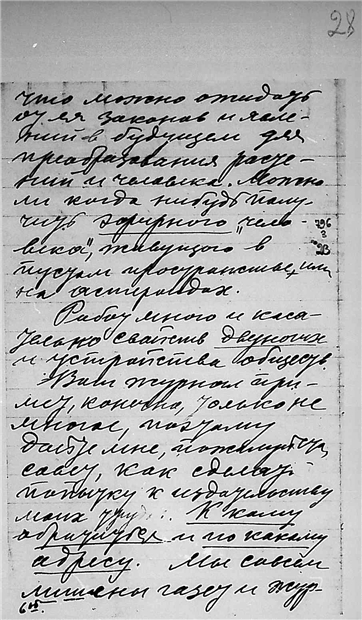 28
что можно ожидать
от ея законов и явле-
ний в будущем для
преобразования расте-
ний и человека. Можно
ли когда нибудь полу-
чить эфирного "чело-
века", живущего в
пустом пространстве, или
на астероидах.
Работ много и каса-
тельно свойств двуногих
и устройства обществ.
Ваш журнал при-
мет, конечно, только не
многое, поэтому
дайте мне, пожалуйста,
совет, как сделать
попытку к издательству
моих тру
К кому
обратиться и по какому
адресу. Мы совсем
лишены газет и жур-